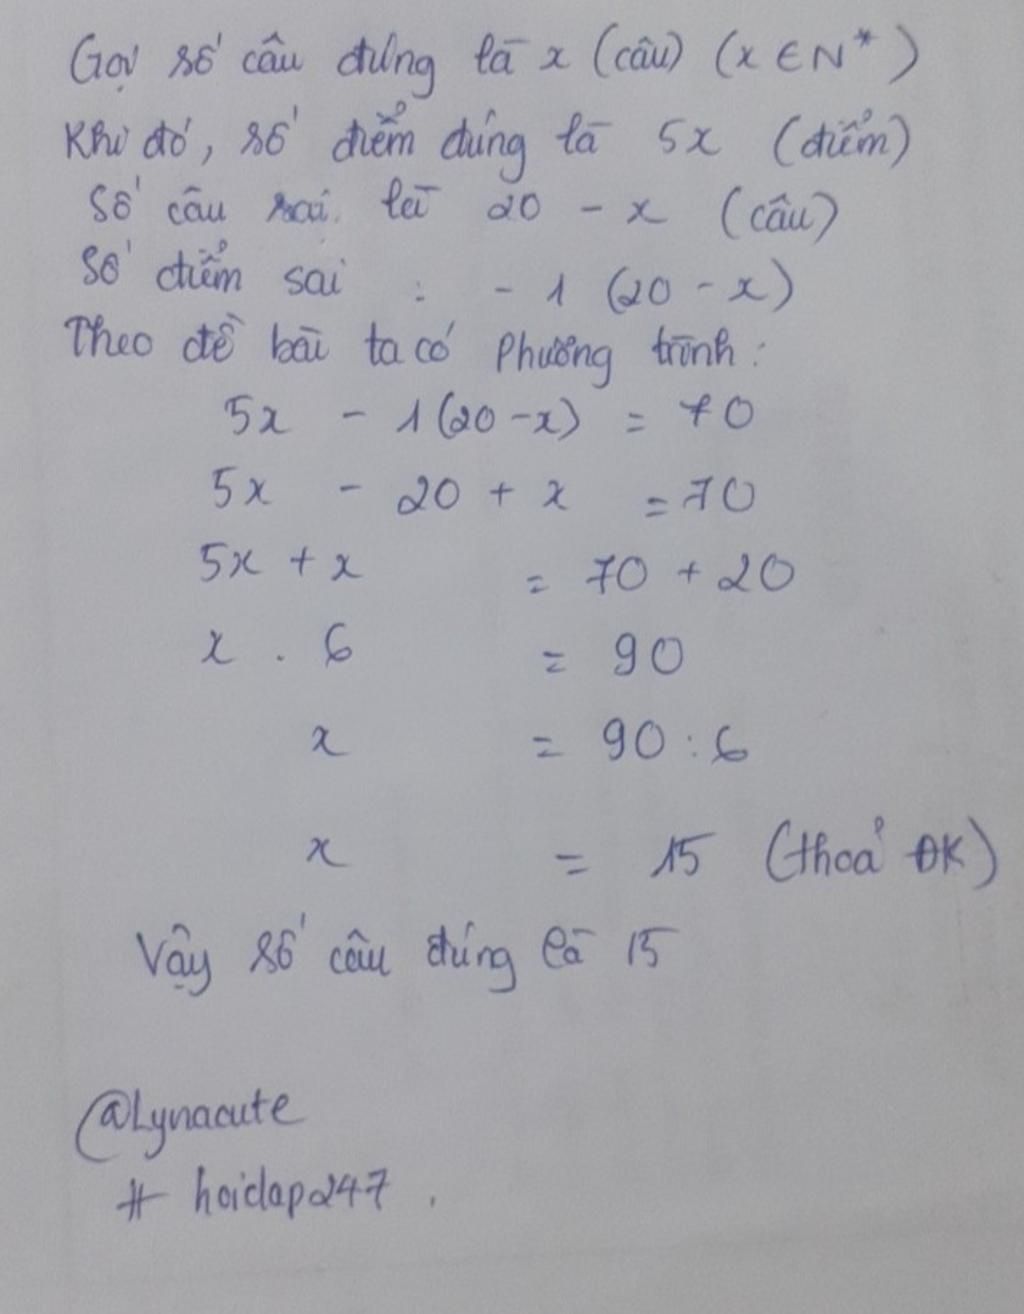 Gọi số câu đúng là x (câu) (x ∈ N*)
Khi đó, số điểm đúng là 5x (điểm)
Số câu sai là 20 - x (câu)
Số điểm sai : - 1 (20 - x)
Theo đề bài ta có Phương trình :
5x - 1(20 - x) = 70
5x - 20 + x = 70
5x + x = 70 + 20
x . 6 = 90
x = 90 : 6
x = 15 (thoả ĐK)
Vậy số câu đúng là 15
@Lynacute
# hoidap247 .